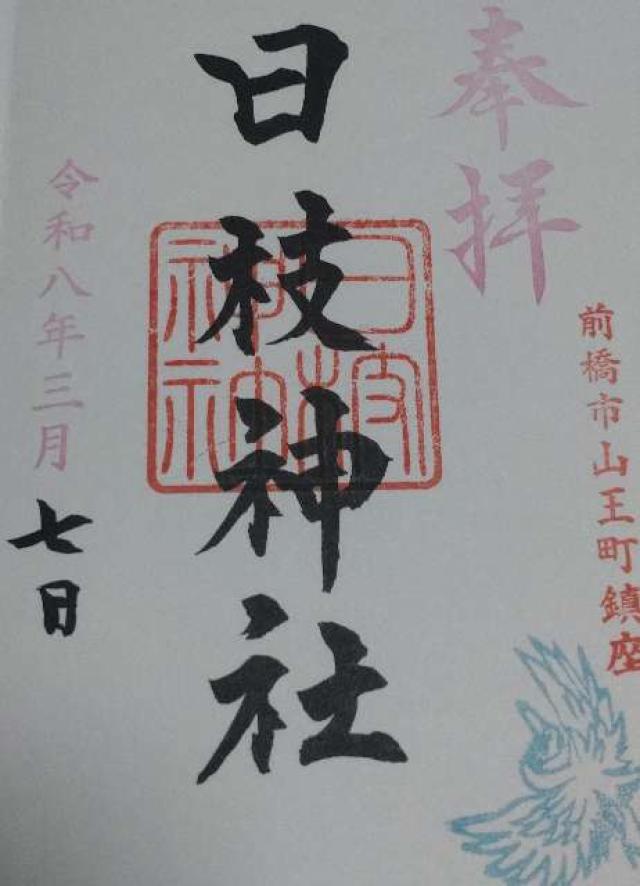 奉拝
前橋市山王町鎮座
日枝神社
日枝神社
令和八年三月
七日